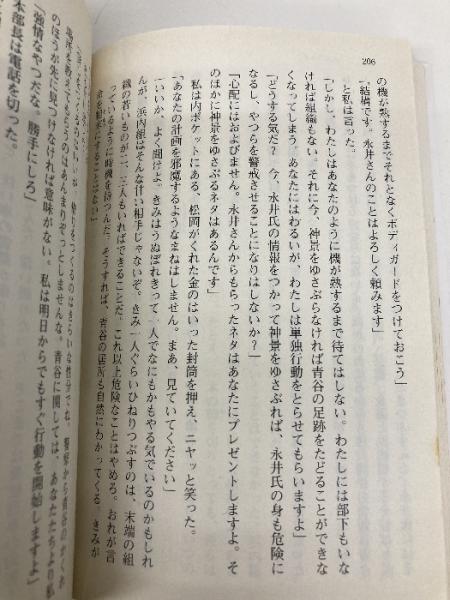 206
の機が熟するまでそれとなくボディガードをつけておこう」
「結構です。永井さんのことはよろしく頼みます」
と私は言った。
「しかし、わたしはあなたのように機が熟するまで待てはしない。わたしには部下もいな
ければ組織もない。それに今、神景をゆさぶらなければ青谷の足跡をたどることができな
くなってしまう。あなたにはわるいが、わたしは単独行動をとらせてもらいますよ」
「どうする気だ？　今、永井氏の情報をつかって神景をゆさぶれば、永井氏の身も危険に
なるし、やつらを警戒させることになりはしないか？」
「心配にはおよびません。永井さんからもらったネタはあなたにプレゼントしますよ。そ
のほかに神景をゆさぶるネタはあるんです」
私は内ポケットにある、松岡がくれた金のはいった封筒を押え、ニヤッと笑った。
「あなたの計画を邪魔するようなまねはしません。まあ、見ていてください」
「いいか、よく聞けよ。きみはうぬぼれきって一人でなにもかもやる気でいるのかもしれ
んが、浜内組はそんな甘い相手じゃないぞ。きみ一人ぐらいひねりつぶすのは、末端の組
織の若いものが二、三人もいればできることだ。これ以上危険なことはやめろ。おれが言
っているように時機を待つんだ。そうすれば、青谷の居所も自然にわかってくる。きみが
金を
にすることはない」
つくるのはきらいな性分でね。
から青谷のかくれ
場所を教えてもらうのはあんまりぞっとしません。青谷に関しては、あなたたちより私
のほうが先に見つけなければ意味がない。私は明日からでもすぐ行動を開始しますよ」
「強情なやつだな。勝手にしろ」
本部長は電話を切った。